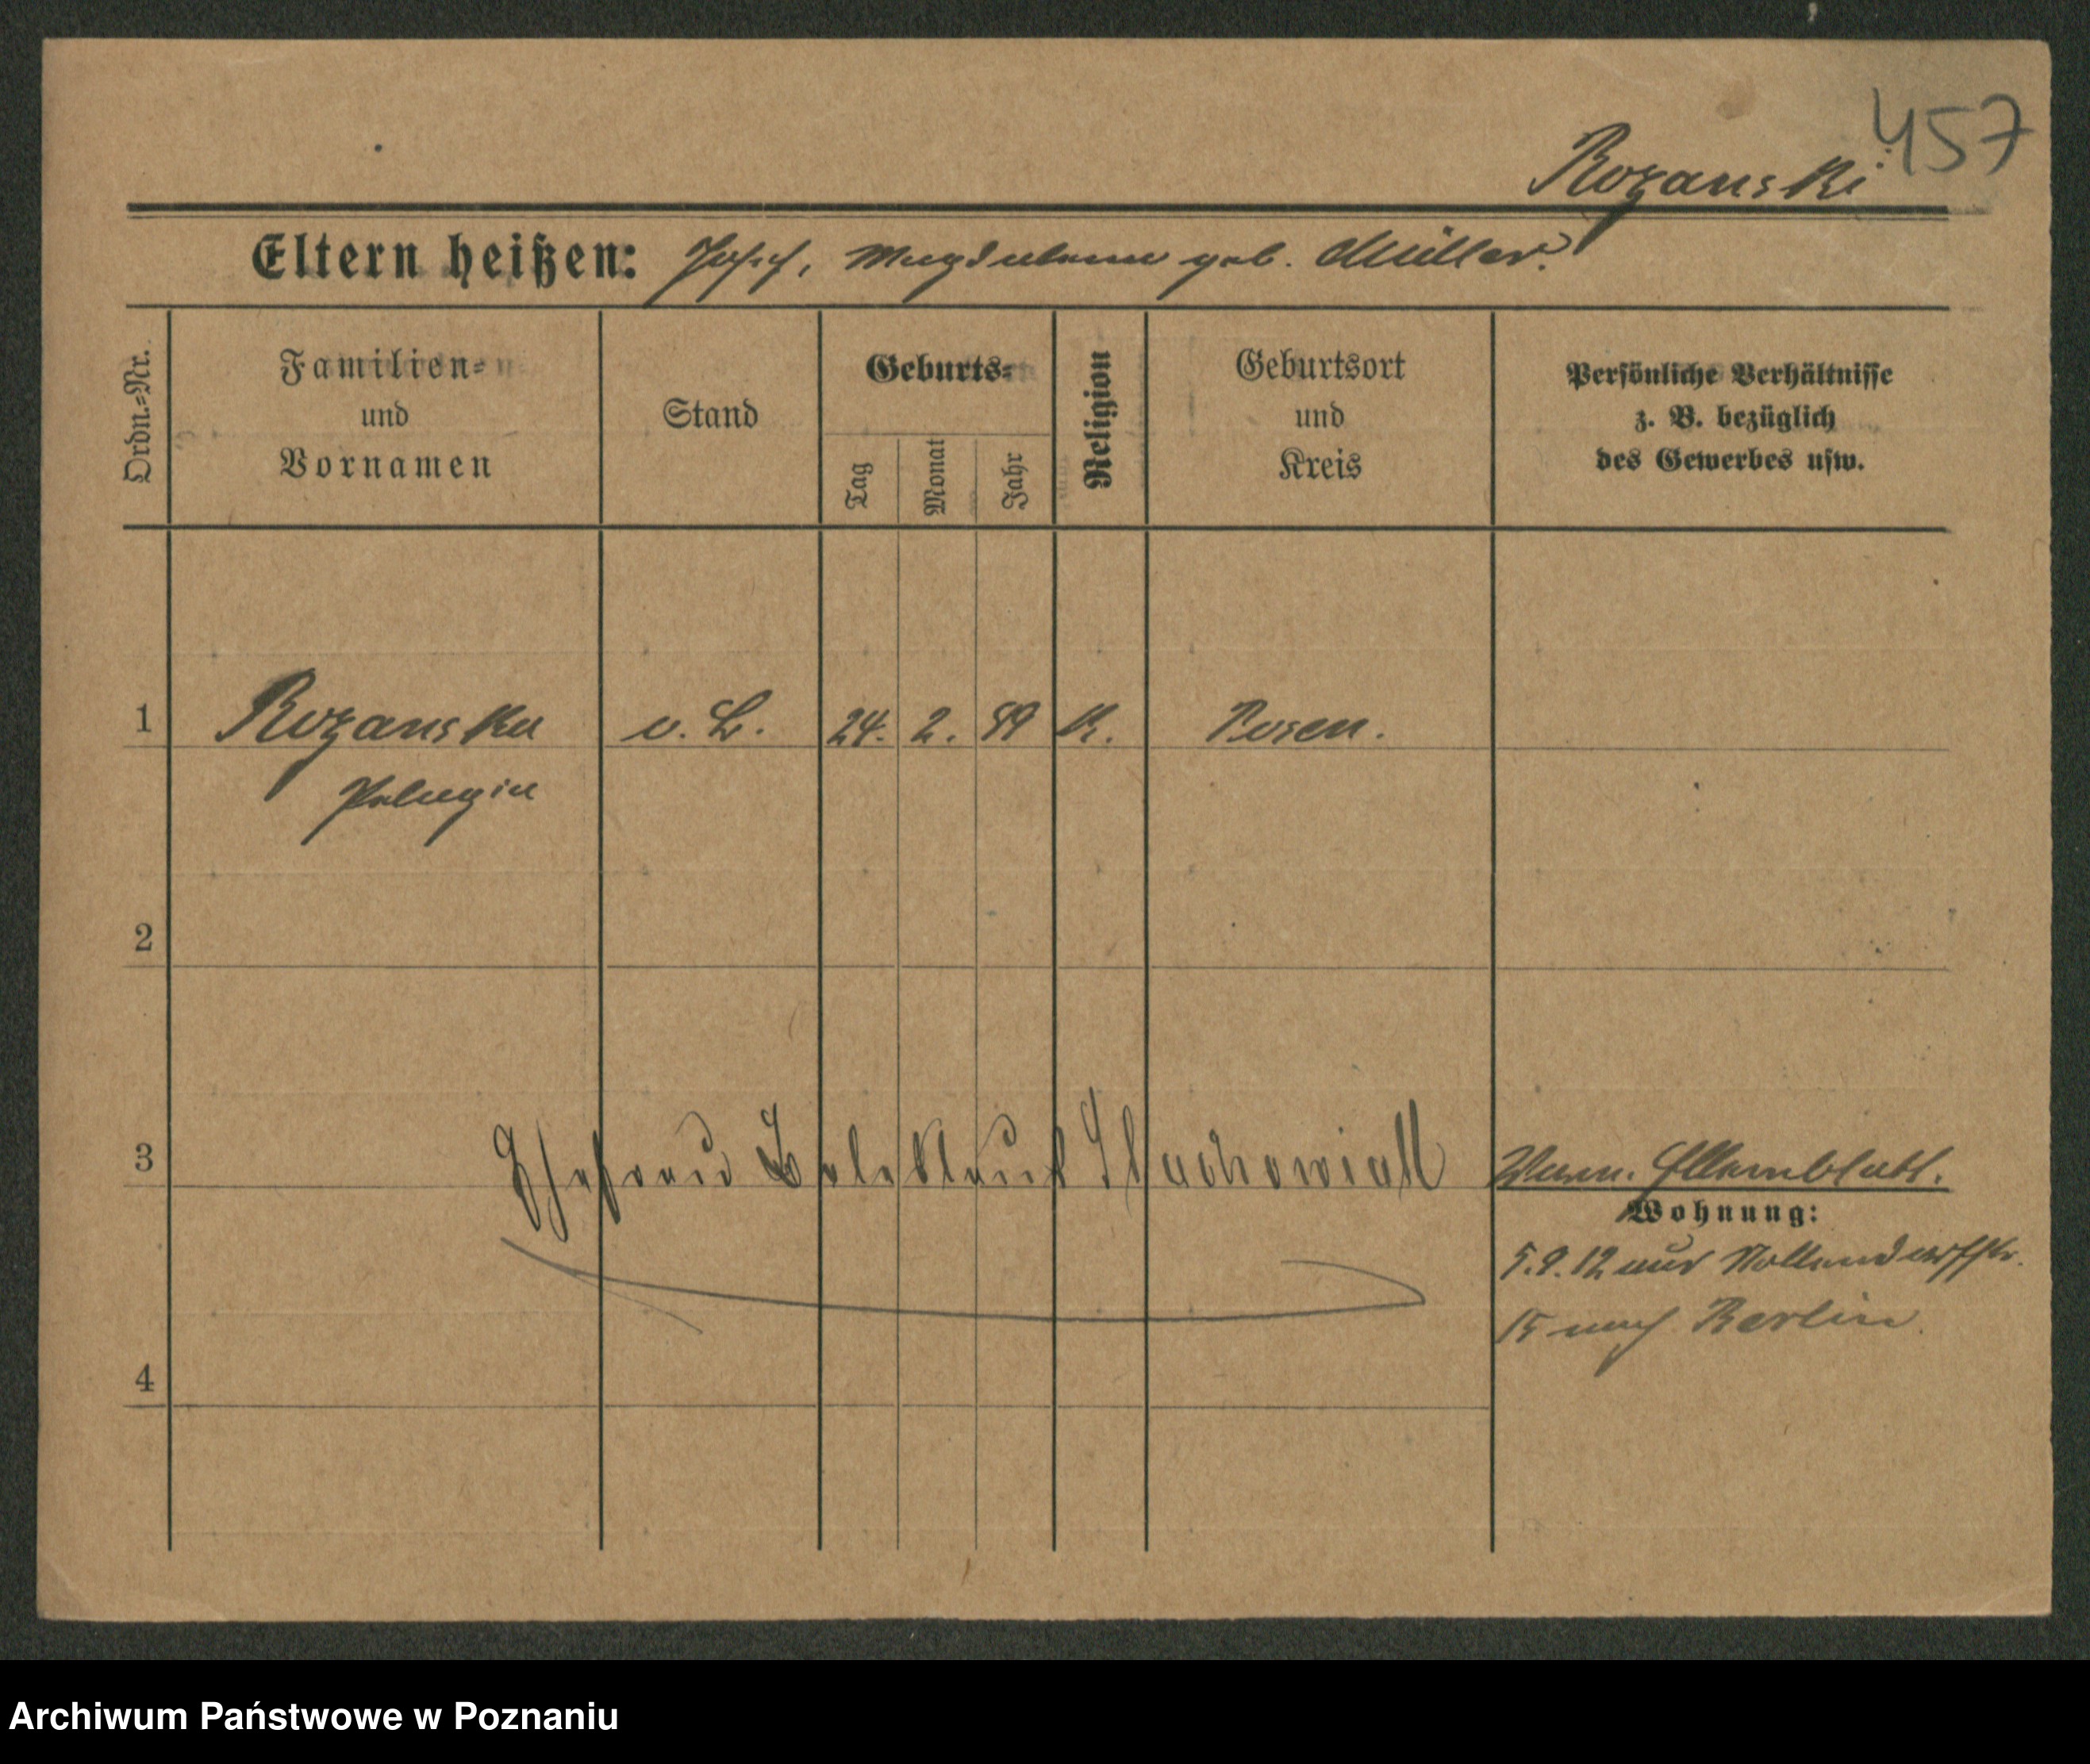 457
Rozanski
Eltern heißen: Josef, Magdalena geb. Müller.
Ordn.=Nr.
Familien=
und
Vornamen
Stand
Geburts=
Tag
Monat
Jahr
Religion
Geburtsort
und
Kreis
Persönliche Verhältnisse
z. B. bezüglich
des Gewerbes usw.
1 Rozanska o. B. 24. 2. 89 K. Posen.
Pelagia
2
3 Ehefrau Stachowiak
Elternblatt.
Wohnung:
5.9.12 aus Nollendorfstr.
15 nach Berlin.
4
Archiwum Państwowe w Poznaniu